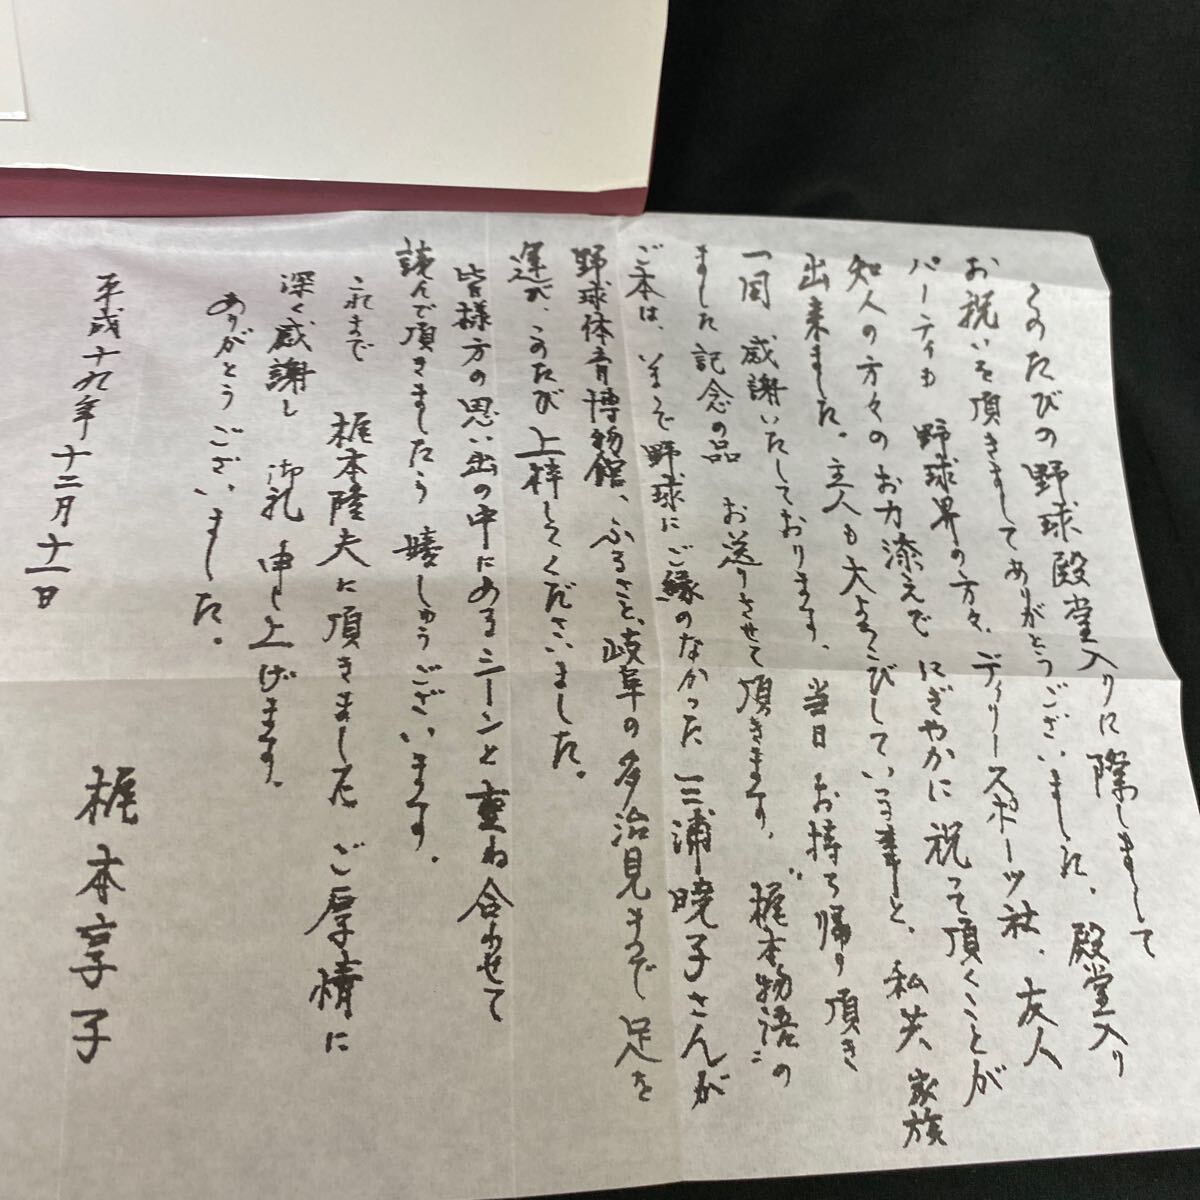 このたびの野球殿堂入りに際しまして
お祝いを頂きましてありがとうございました。殿堂入り
パーティも 野球界の方々、デイリースポーツ社、友人
知人の方々のお力添えで にぎやかに祝って頂くことが
出来ました。主人も大よろこびしている事と、私共 家族
一同 感謝いたしております。当日 お持ち帰り頂き
ました記念の品 お送りさせて頂きます。"梶本物語"の
ご本は、いままで野球にご縁のなかった三浦暁子さんが
野球体育博物館、ふるさと、岐阜の多治見まで 足を
運び、このたび上梓してくださいました。
皆様方の思い出の中にあるシーンと重ね合わせて
読んで頂きましたら 嬉しゅうございます。
これまで 梶本隆夫に頂きました ご厚情に
深く感謝し 御礼申し上げます。
ありがとうございました。
平成十九年 十二月十一日
梶本享子